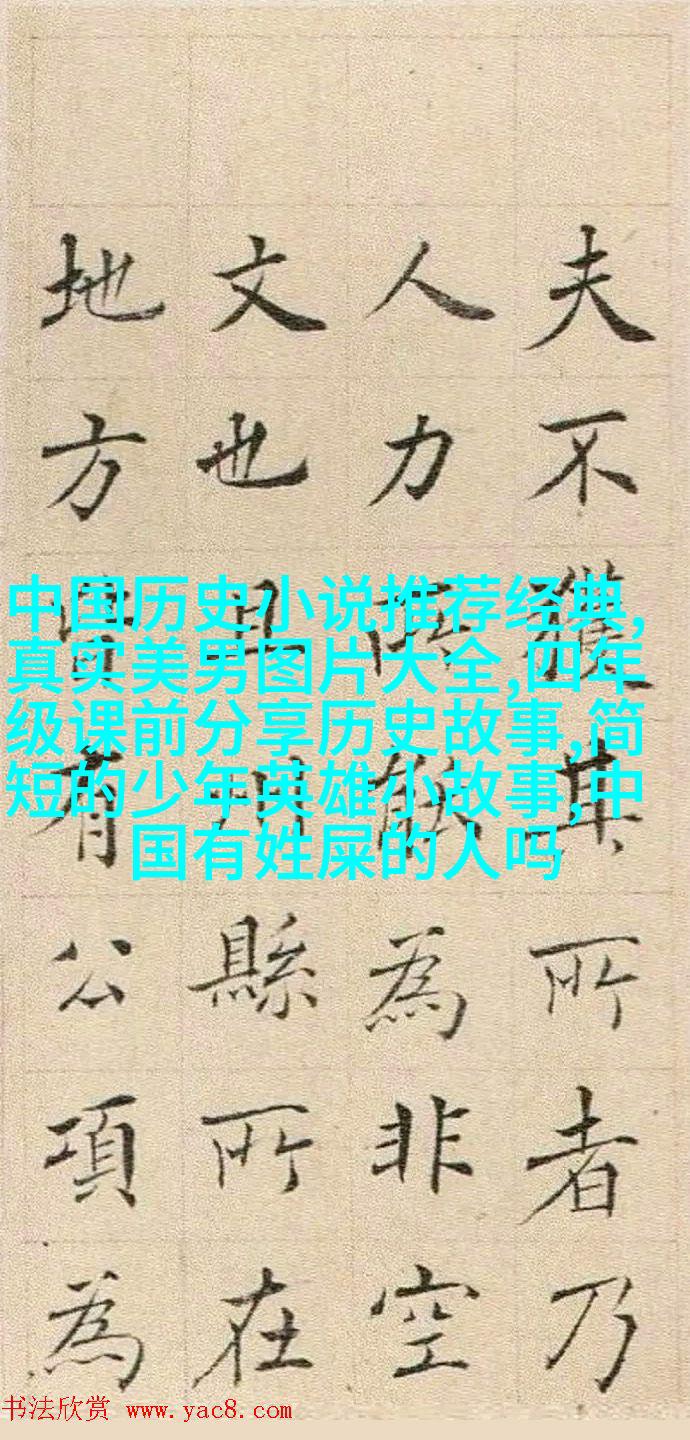 夫不獲其所者乃
人力能為非空
文也且縣所在
地方有公項為
中国历史小说推荐经典,
真实美男图片大全,四年
级课前分享历史故事,简
短的少年英雄小故事,中
国有姓屎的人吗
书法欣赏 www.yac8.com